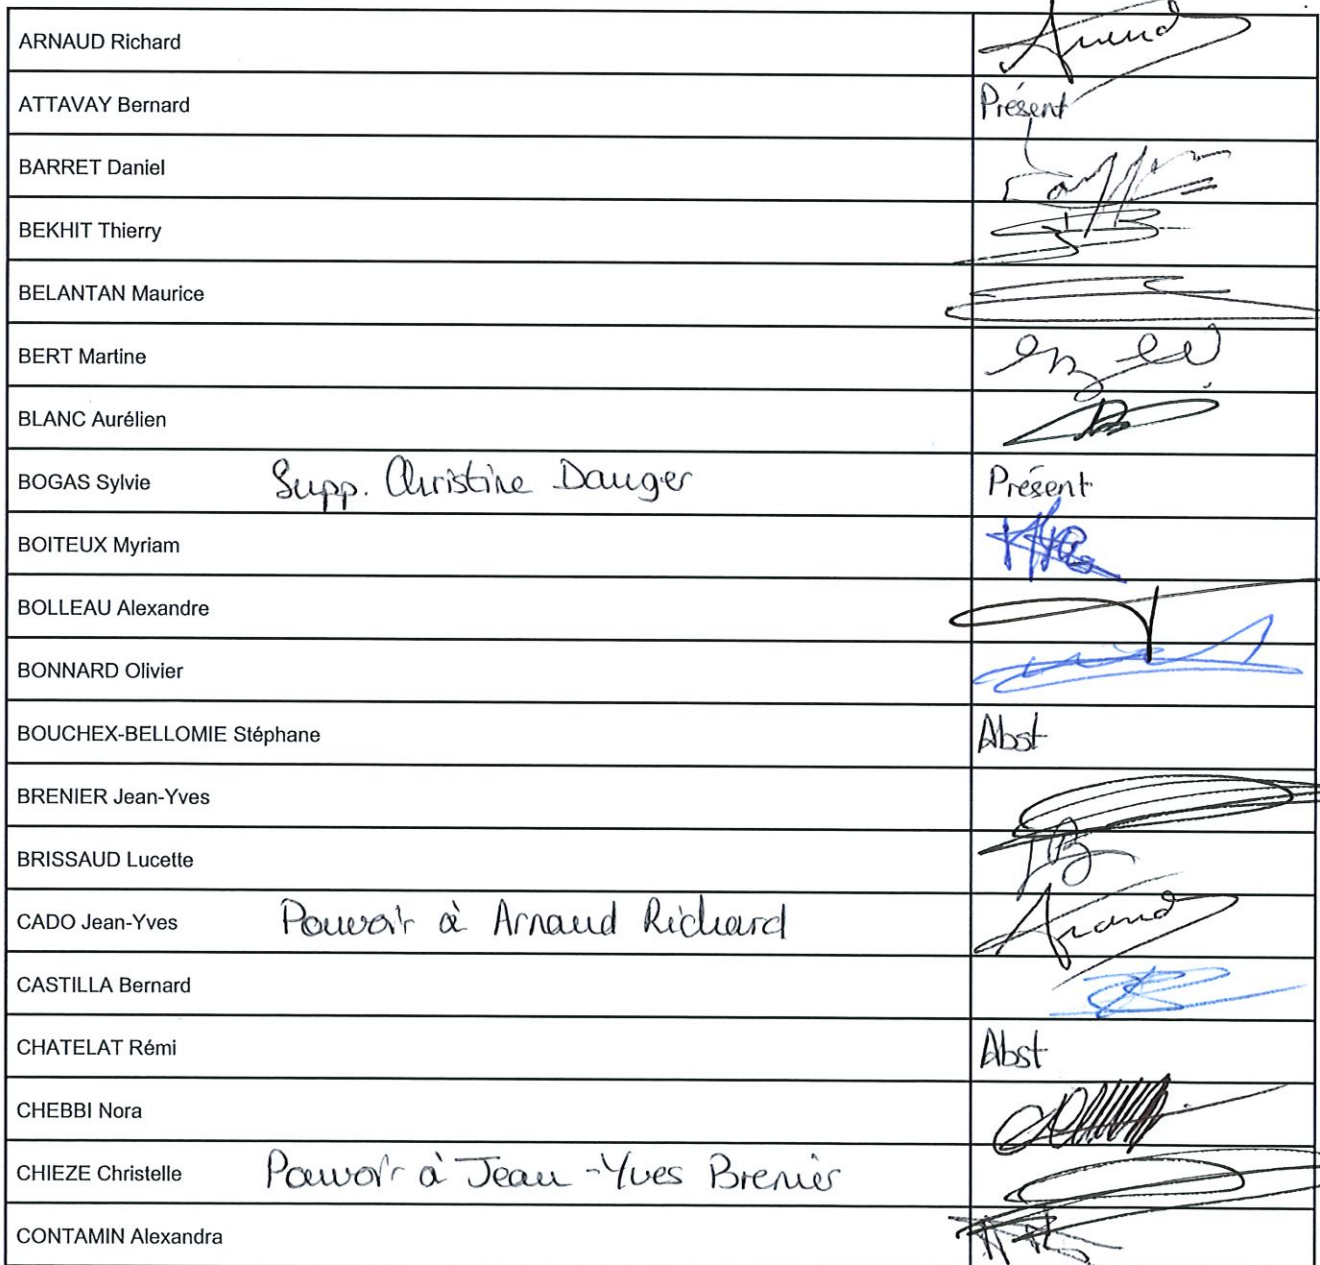 ARNAUD Richard
ATTAVAY Bernard Présent
BARRET Daniel
BEKHIT Thierry
BELANTAN Maurice
BERT Martine
BLANC Aurélien
BOGAS Sylvie Supp. Christine Dauger Présent
BOITEUX Myriam
BOLLEAU Alexandre
BONNARD Olivier
BOUCHEX-BELLOMIE Stéphane Abst
BRENIER Jean-Yves
BRISSAUD Lucette
CADO Jean-Yves Pouvoir à Arnaud Richard
CASTILLA Bernard
CHATELAT Rémi Abst
CHEBBI Nora
CHIEZE Christelle Pouvoir à Jean-Yves Brenier
CONTAMIN Alexandra